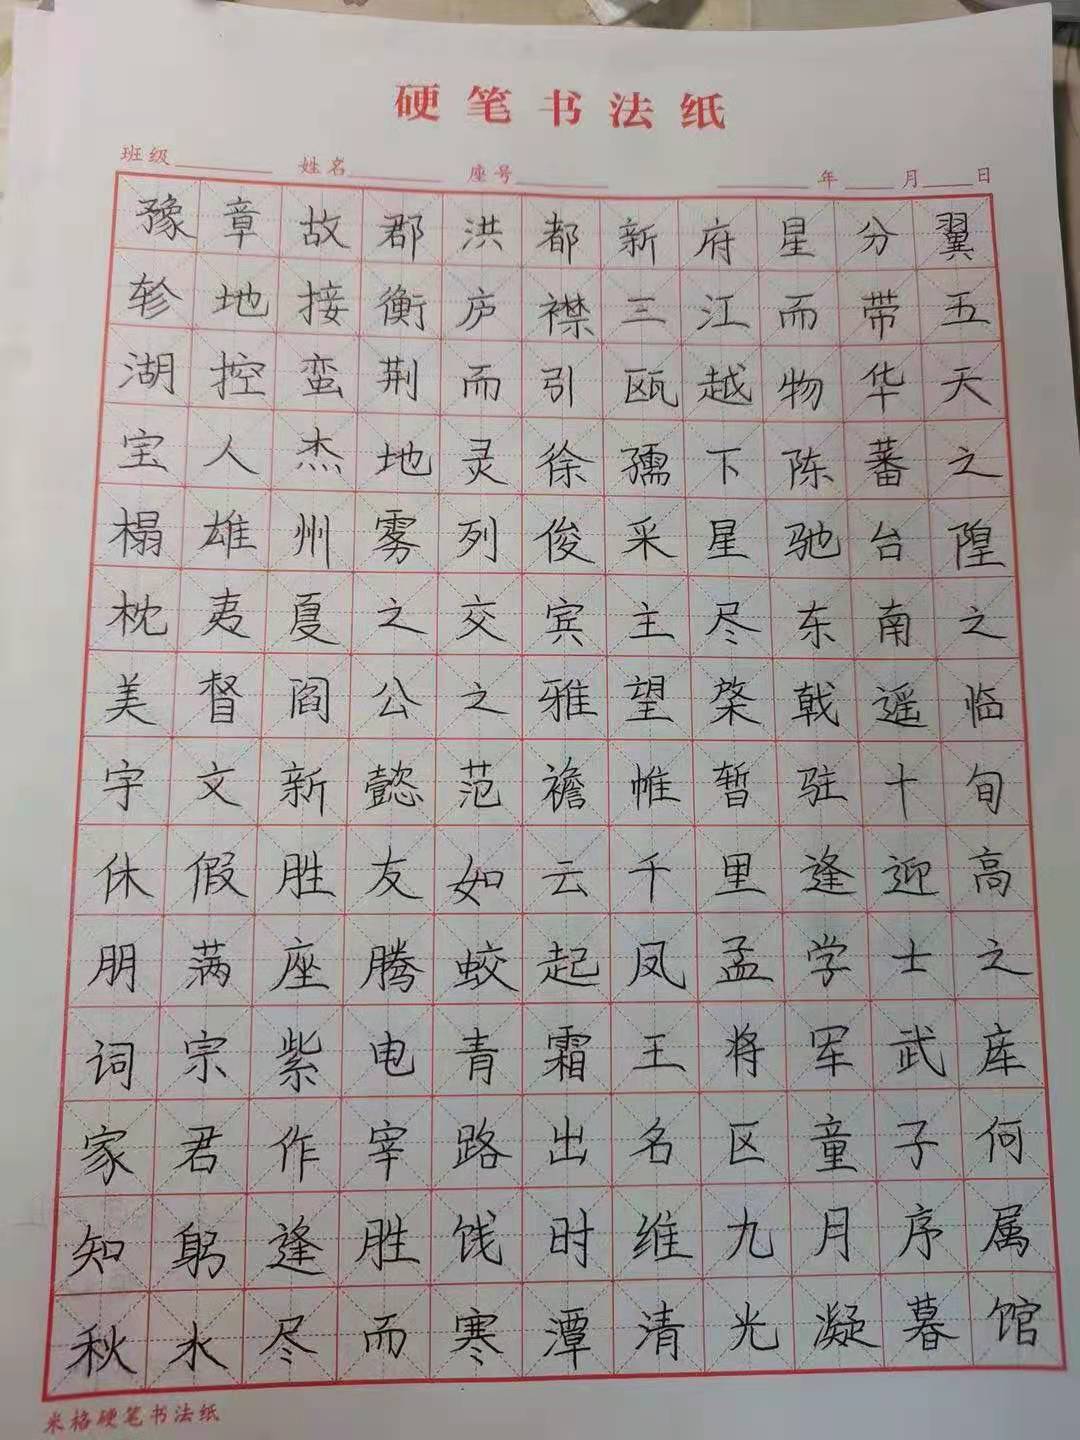 硬笔书法纸
班级 姓名 座号 年 月 日
豫章故郡洪都新府星分翼
轸地接衡庐襟三江而带五
湖控蛮荆而引瓯越物华天
宝人杰地灵徐孺下陈蕃之
榻雄州雾列俊采星驰台隍
枕夷夏之交宾主尽东南之
美督阎公之雅望棨戟遥临
宇文新懿范襜帷暂驻十旬
休假胜友如云千里逢迎高
朋满座腾蛟起凤孟学士之
词宗紫电青霜王将军武库
家君作宰路出名区童子何
知躬逢胜饯时维九月序属
秋水尽而寒潭清光凝暮馆
米格硬笔书法纸